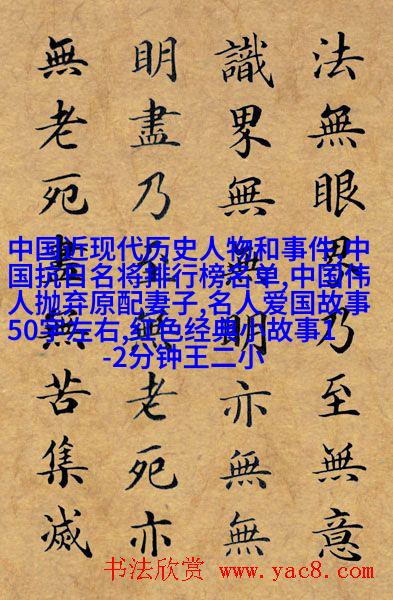 法無眼界乃至無意
識界無無明亦無無
明盡乃至無老死亦
無老死盡無苦集滅
中国近现代历史人物和事件,中
国抗日名将排行榜名单,中国伟
人抛弃原配妻子,名人爱国故事
50字左右,红色经典小故事1
-2分钟王二小
书法欣赏 www.yac8.com